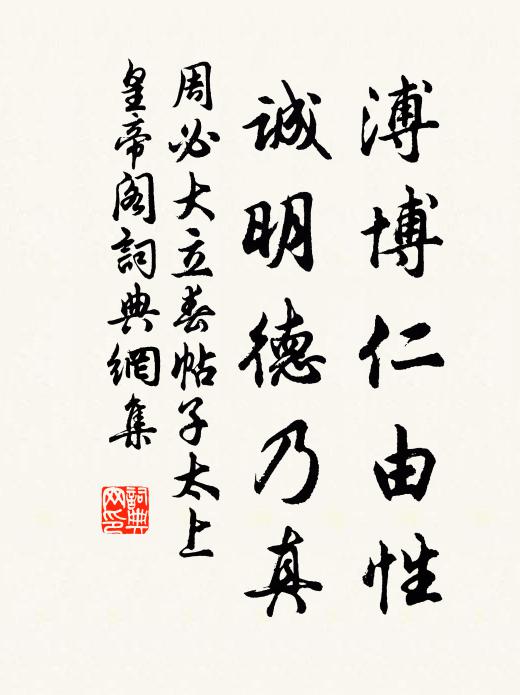 溥博仁由性
誠明德乃真
周必大立春帖子太上
皇帝閣詞典網集
詞典
网印